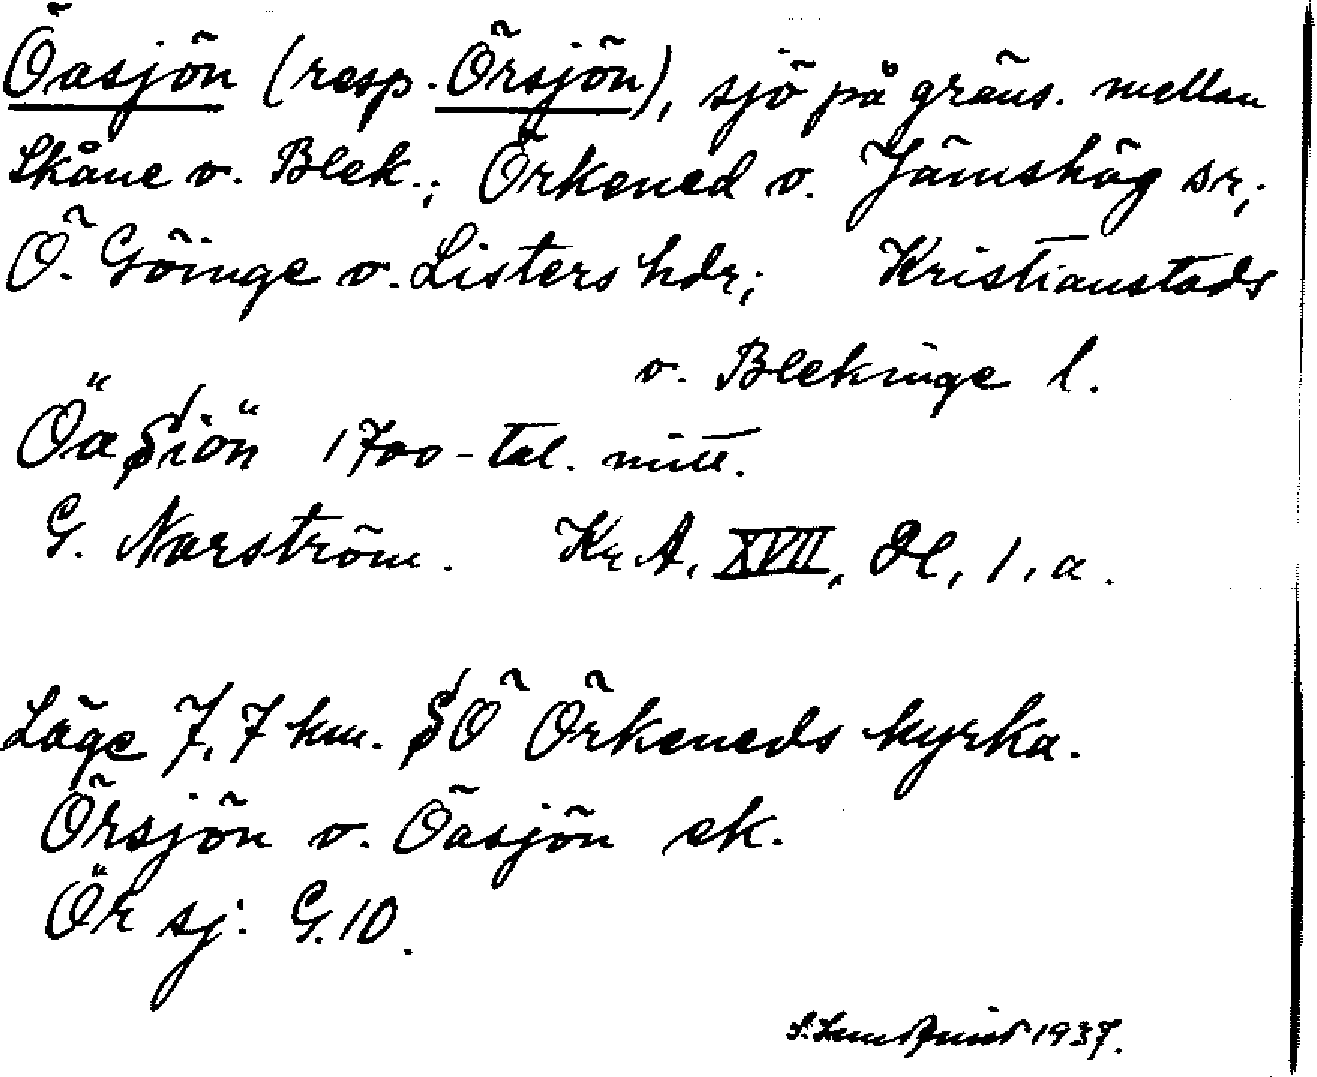 Öasjön (resp. Örsjön), sjö på gräns. mellan
Skåne o. Blek.; Örkened o. Jämshög sr;
Ö. Göinge o. Listers hdr; Kristianstads
o. Blekinge l.
Öa Siön 1700-tal. mitt.
G. Norström. Kr A, XVII, Bl, 1, a.
Läge 7,7 km. SÖ Örkeneds kyrka.
Örsjön o. Öasjön ek.
Ör sj: G. 10.
1937.